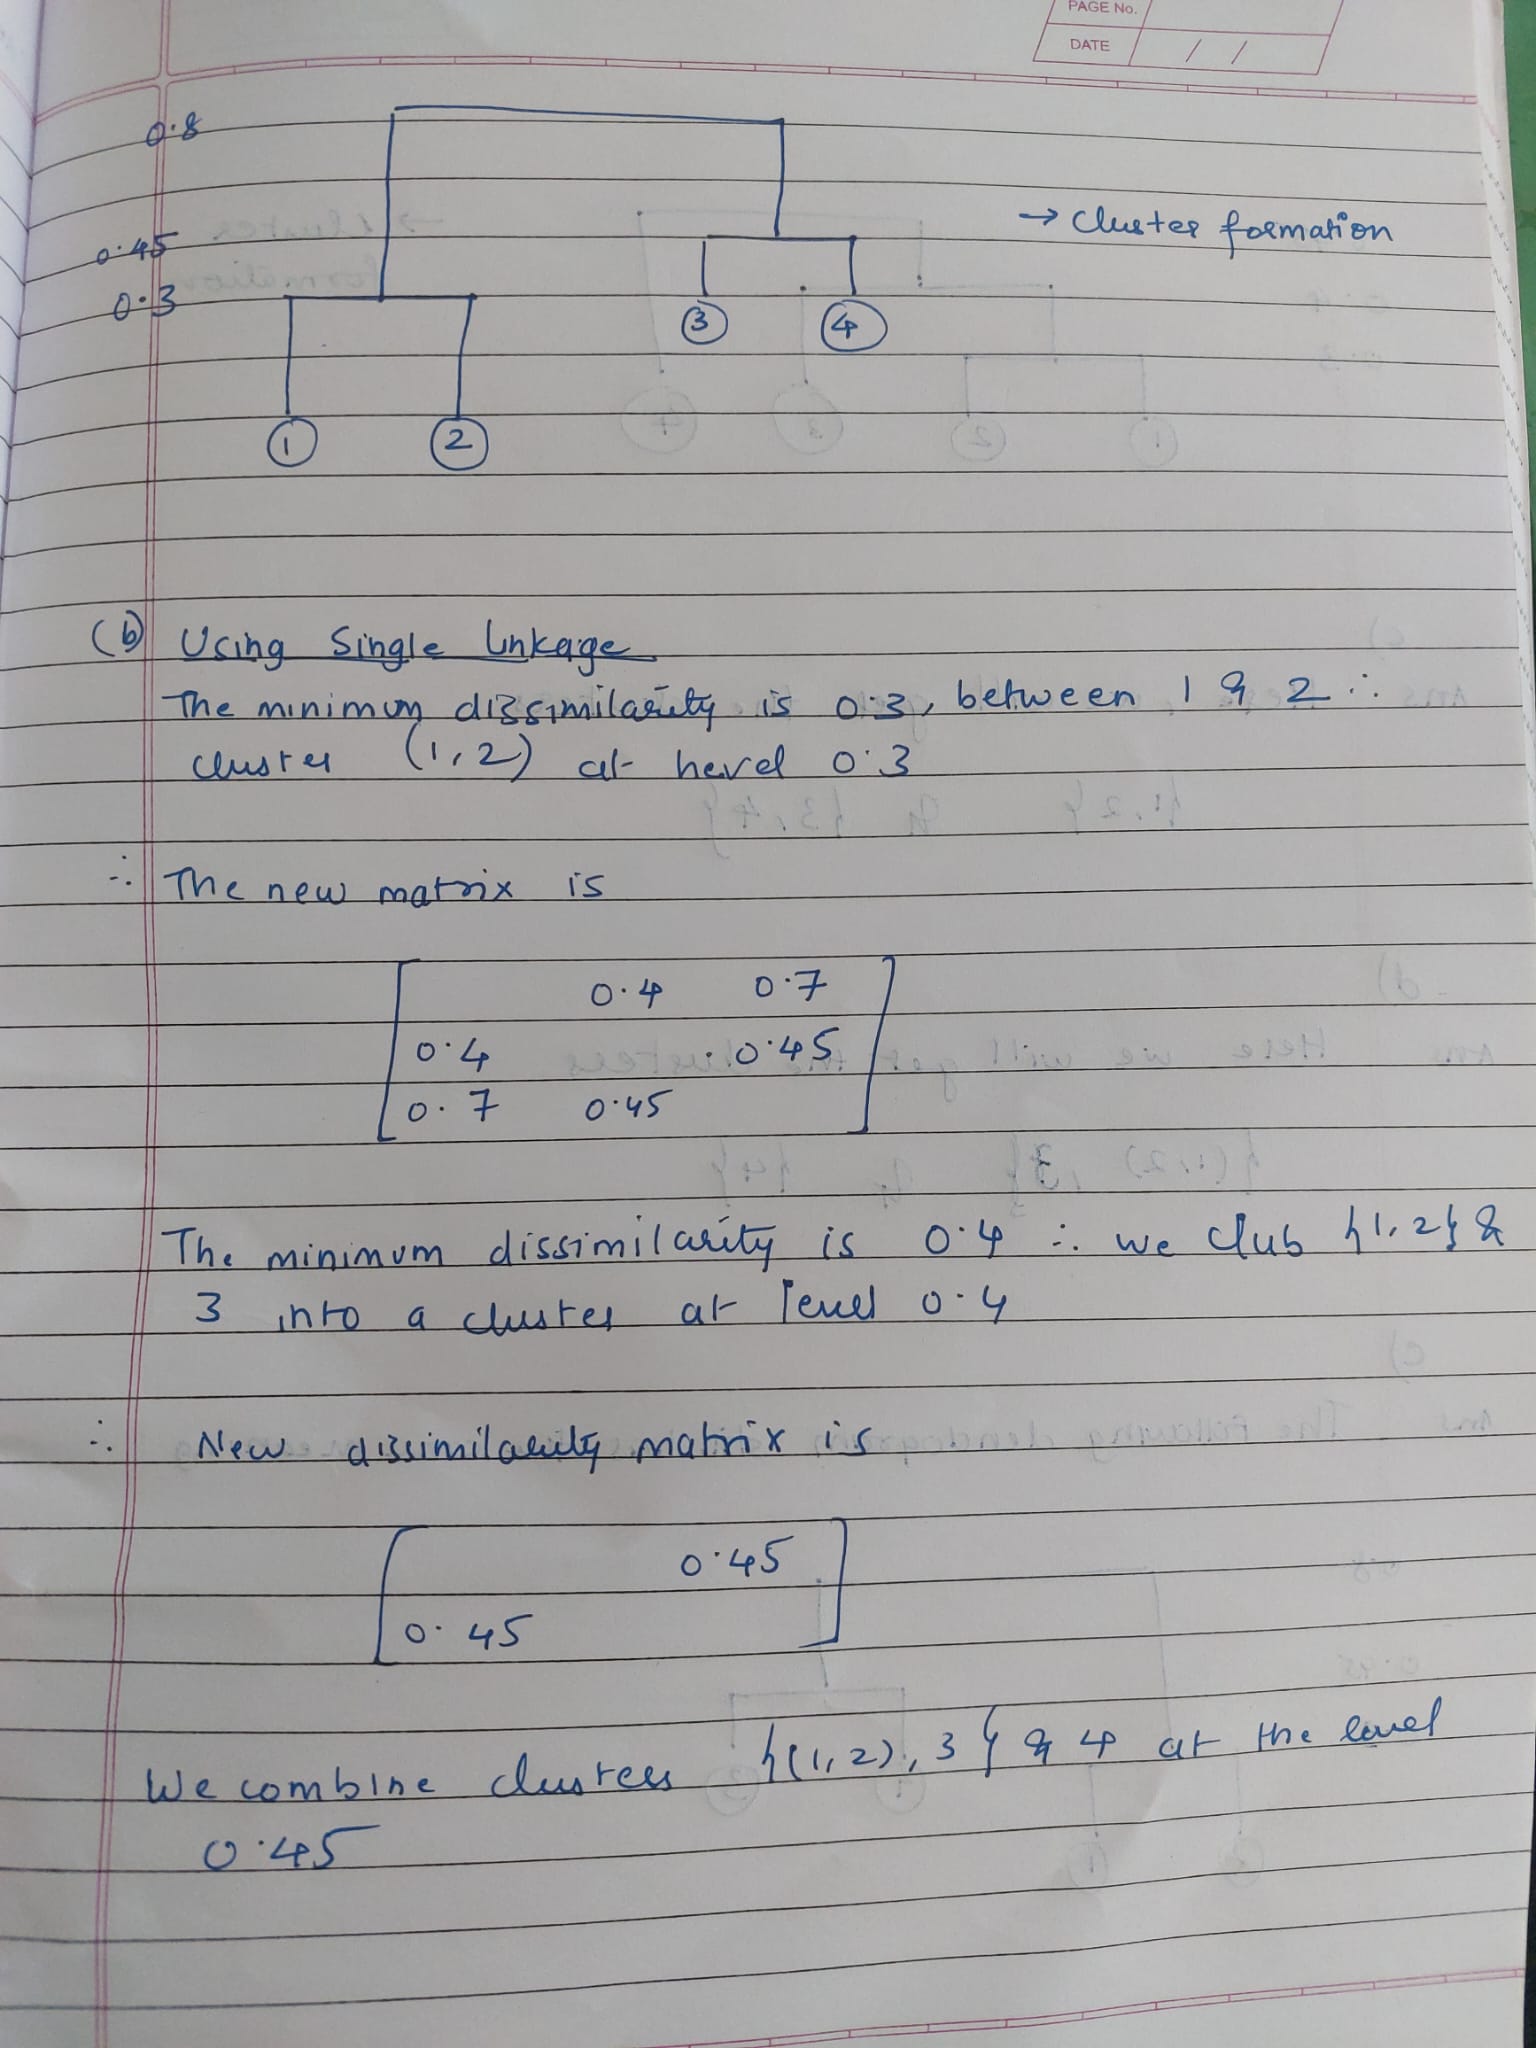 PAGE No.
DATE / /
0.8
→ Cluster formation
0.45
0.3
3 4
1 2
(b) Using Single linkage
The minimum dissimilarity is 0.3, between 1 & 2 ∴
cluster (1,2) at level 0.3
∴ The new matrix is
0.4 0.7
0.4 0.45
0.7 0.45
The minimum dissimilarity is 0.4 ∴ we club {1,2} &
3 into a cluster at level 0.4
∴ New dissimilarity matrix is
0.45
0.45
We combine clusters {(1,2),3} & 4 at the level
0.45